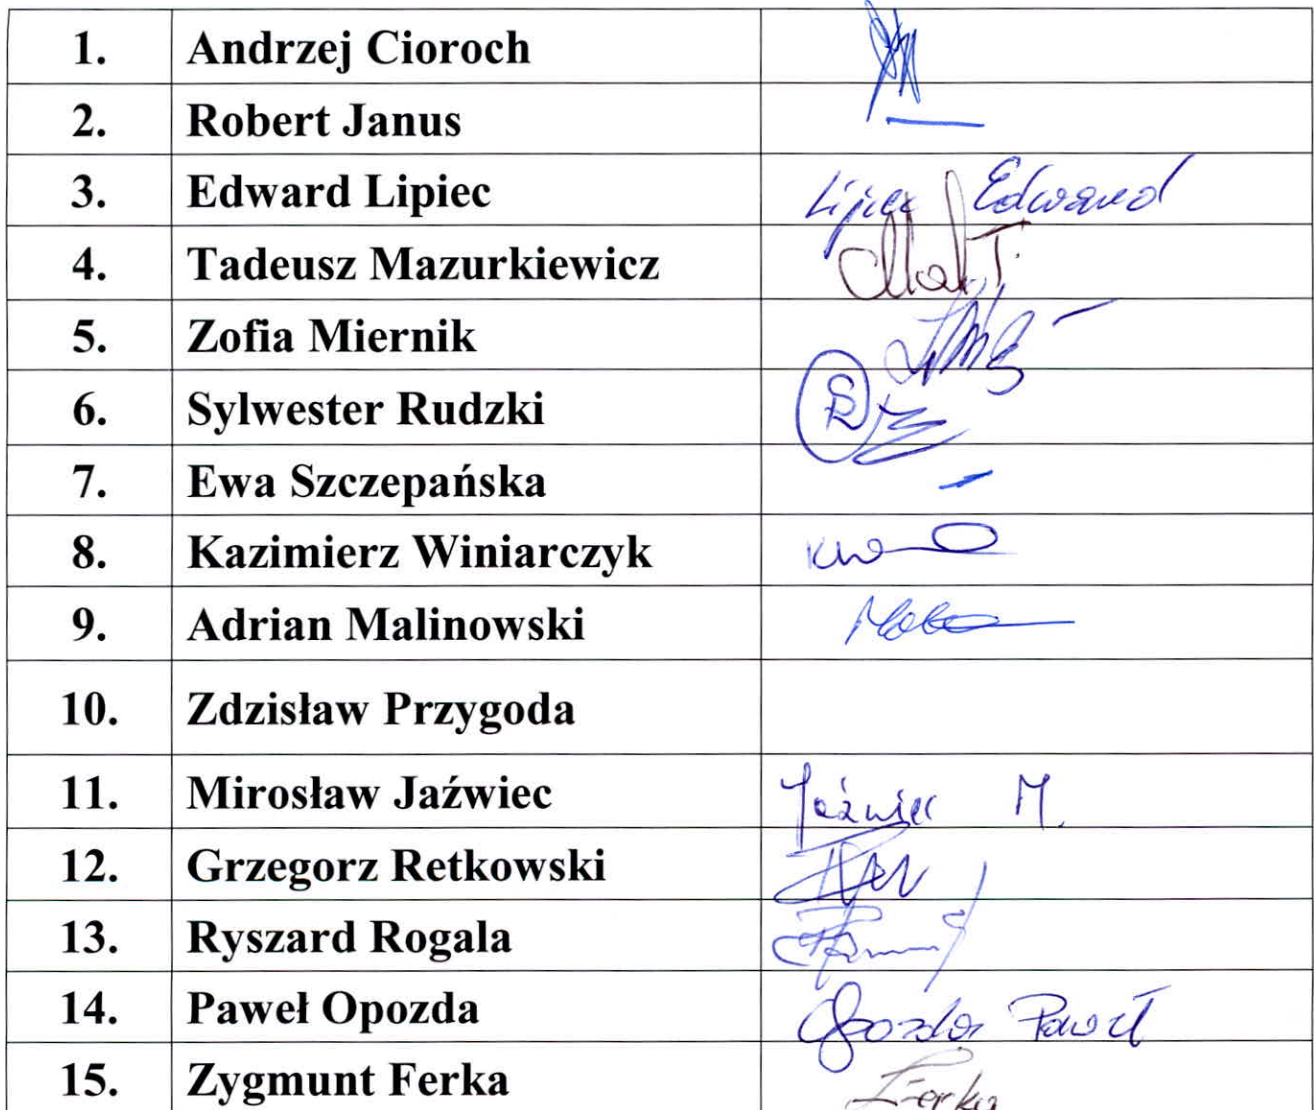 1. Andrzej Cioroch
2. Robert Janus
3. Edward Lipiec Lipiec Edward
4. Tadeusz Mazurkiewicz
5. Zofia Miernik
6. Sylwester Rudzki
7. Ewa Szczepańska
8. Kazimierz Winiarczyk
9. Adrian Malinowski
10. Zdzisław Przygoda
11. Mirosław Jaźwiec Jaźwiec M.
12. Grzegorz Retkowski
13. Ryszard Rogala
14. Paweł Opozda Opozda Paweł
15. Zygmunt Ferka Ferka